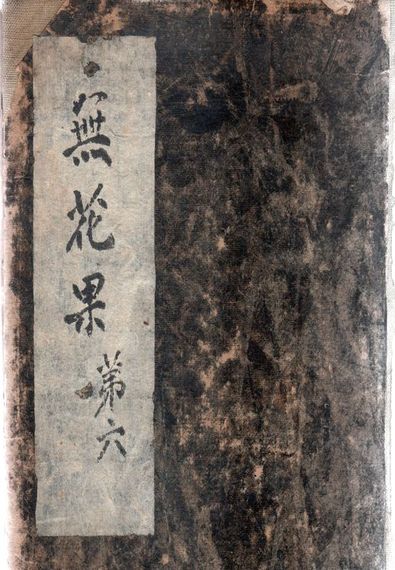 蕪花果
第六